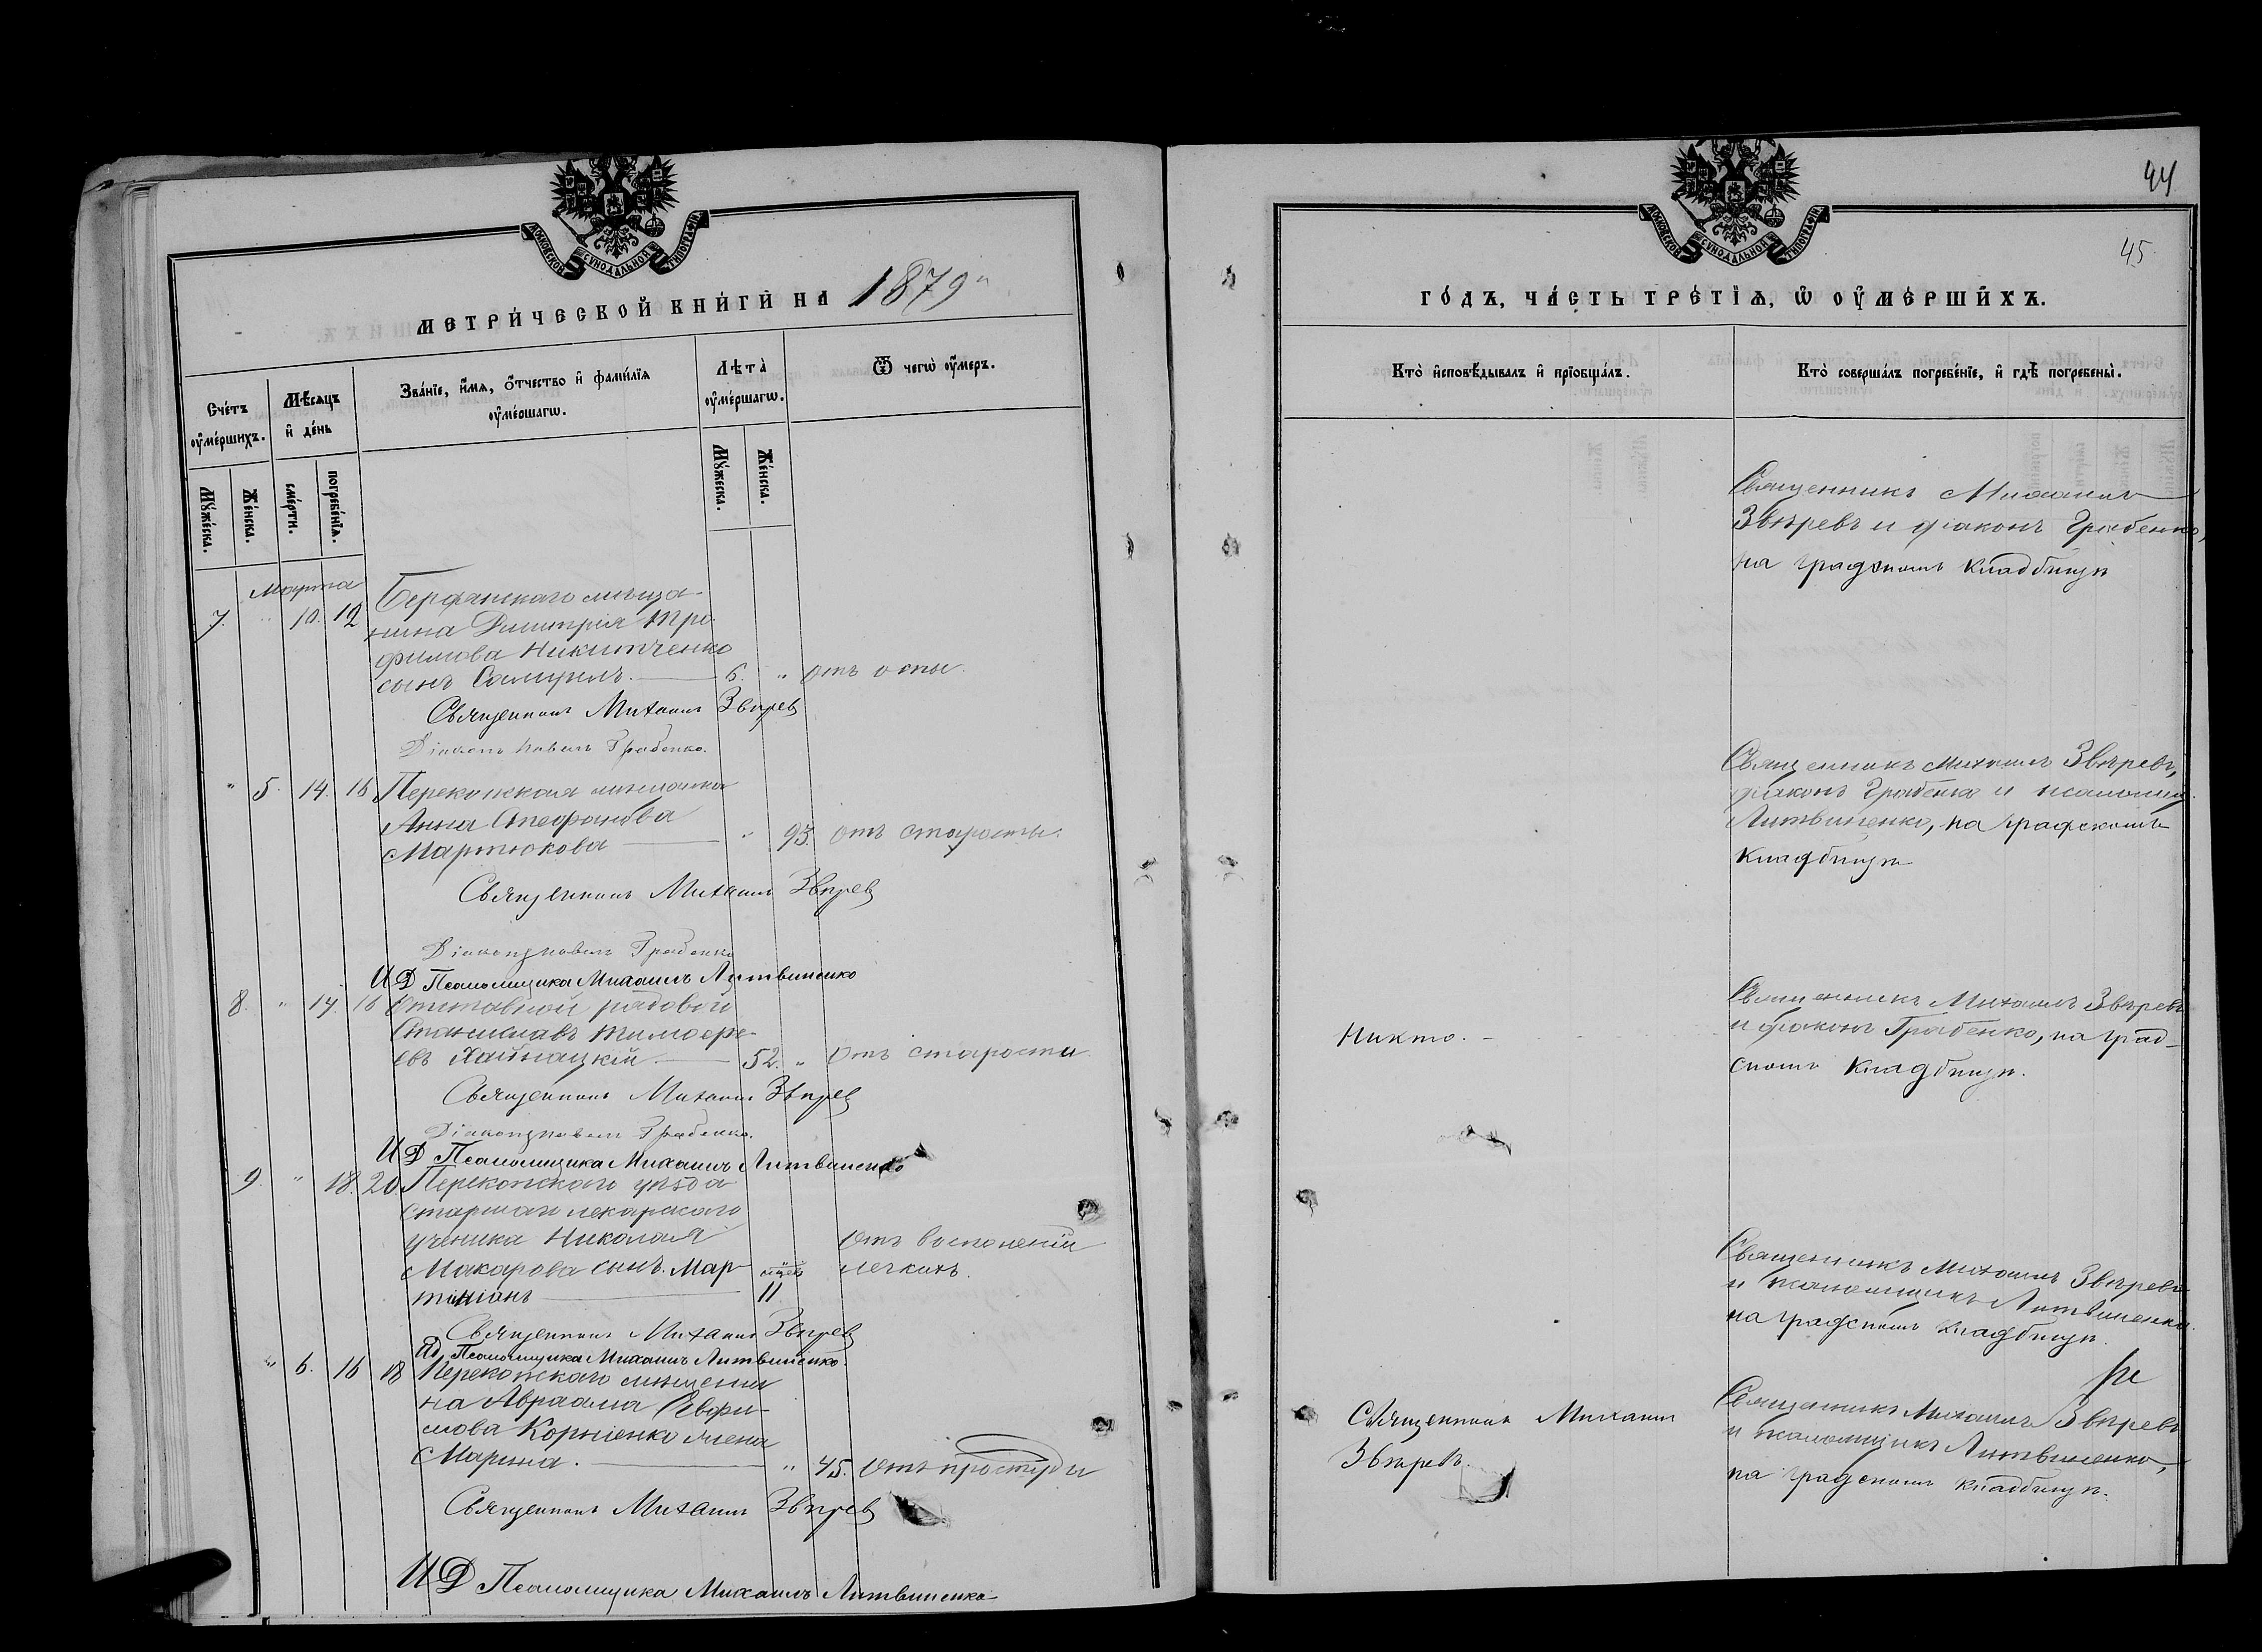 МОСКОВСКОЙ СѴНОДАЛЬНОЙ ТИПОГРАФІИ
МЕТРИ́ЧЕСКОЙ КНИ́ГИ НА 1879
Сче́тъ оу҆ме́ршихъ.
Мѣ́сяцъ и҆ де́нь
Зва́нїе, и҆́мѧ, ѻ҆́тчество и҆ фами́лїѧ оу҆ме́ршагѡ.
Лѣта̀ оу҆ме́ршагѡ.
Ѿ чегѡ̀ оу҆́меръ.
Мꙋ́жеска.
Же́нска.
сме́рти.
погребе́нїѧ.
Мꙋ́жеска.
Же́нска.
Марта
7. " 10. 12 Бердянскаго мѣща-
нина Димитрія Тро-
фимова Никитченко
сынъ Самуилъ. 6. " отъ оспы.
Священникъ Михаилъ Звѣрев
Діаконъ Павелъ Грабенко.
" 5. 14. 16 Перекопская мѣщанка
Анна Стефанова
Мартюкова " 93. отъ старости.
Священникъ Михаилъ Звѣрев
Діаконъ Павелъ Грабенко
И Д Псаломщика Михаилъ Литвиненко
8. " 14. 16 Отставной рядовой
Станиславъ Тимофе-
евъ 52. " отъ старости
Священникъ Михаилъ Звѣрев
Діаконъ Павелъ Грабенко.
И Д Псаломщика Михаилъ Литвиненко
9. " 18. 20. Перекопскаго уѣзда
старшаго лекарскаго
ученика Николая
Макарова сынъ Мар-
тиніанъ 11
отъ воспаленія
легкихъ.
Священникъ Михаилъ Звѣрев
И Д Псаломщика Михаилъ Литвиненко.
" 6. 16 18 Перекопскаго мѣщани
на Авраама Евфи-
мова Корніенко жена
Марина. " 45. отъ простуды
Священникъ Михаилъ Звѣрев
И Д Псаломщика Михаилъ Литвиненко
44
45
МОСКОВСКОЙ СѴНОДАЛЬНОЙ ТИПОГРАФІИ
ГО́ДЪ, ЧА́СТЬ ТРЕ́ТЇѦ, Ѡ҆ ОУ҆МЕ́РШИХЪ.
Кто̀ и҆сповѣ́дывалъ и҆ прїобща́лъ.
Кто̀ соверша́лъ погребе́нїе, и҆ гдѣ̀ погребены̀.
Священникъ Михаилъ
Звѣревъ и діаконъ Грабенко,
на градскомъ кладбищѣ
Священникъ Михаилъ Звѣревъ,
діаконъ Грабенко и псаломщ.
Литвиненко, на градскомъ
кладбищѣ
Никто.
Священникъ Михаилъ Звѣревъ
и діаконъ Грабенко, на град-
скомъ кладбищѣ.
Священникъ Михаилъ Звѣревъ
и псаломщикъ Литвиненко
на градскомъ кладбищѣ.
Священникъ Михаилъ
Звѣревъ.
Священникъ Михаилъ Звѣревъ
и псаломщикъ Литвиненко,
на градскомъ кладбищѣ.